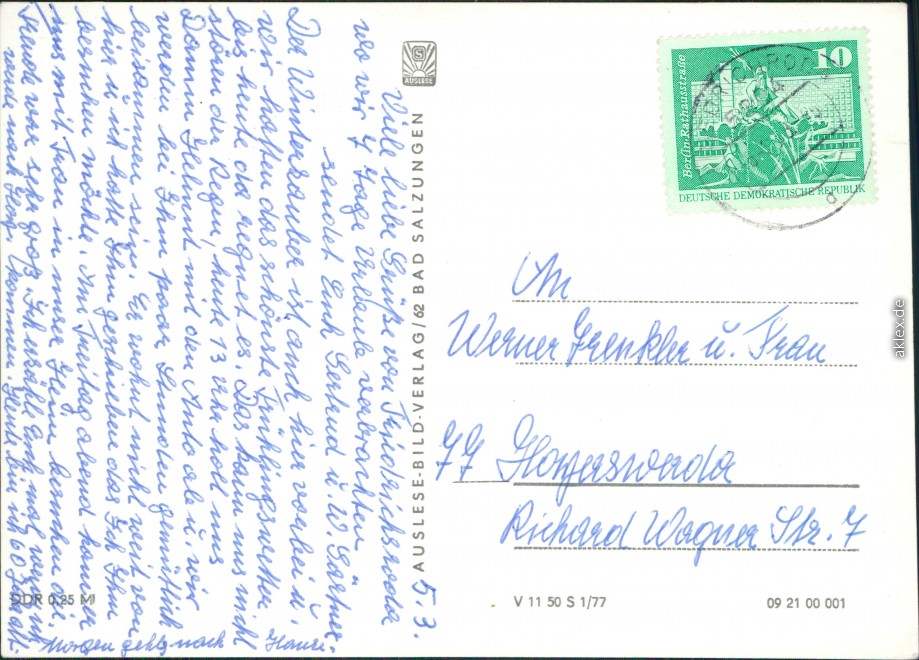 5.3.
Viele liebe Grüße von Friedrichroda
wo wir 7 Tage Urlaub verbrachten
sendet Euch Gertrud u. W.
Der Winterzauber ist auch hier vorbei u.
wir hatten das schönste Frühlingswetter
bis heute da regnet es. Das kann uns nicht
stören der Regen, heute 13 Uhr holt uns
Dann Helmut mit den Auto ab u. wir
werden bei Ihm paar Stunden gemütlich
beisammen sein. Er wohnt nicht weit von
hier u. ich hatte Ihm geschrieben das Ich Ihn
besuchen möchte. Am Freitag abend kam er
uns mit Frau in unser Heim besuchen die
Freude war sehr groß. Ich erzähle euch mal wenn
Morgen gehts nach Hause.
AUSLESE
AUSLESE-BILD-VERLAG/62 BAD SALZUNGEN
10
Berlin-Rathausstraße
DEUTSCHE DEMOKRATISCHE REPUBLIK
An
Werner Frenkler u. Frau
77 Hoyerswerda
Richard Wagner Str. 7
DDR 0,25 M
V 11 50 S 1/77
09 21 00 001
aklex.de